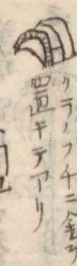 クラノフチニ金
置キテアリ